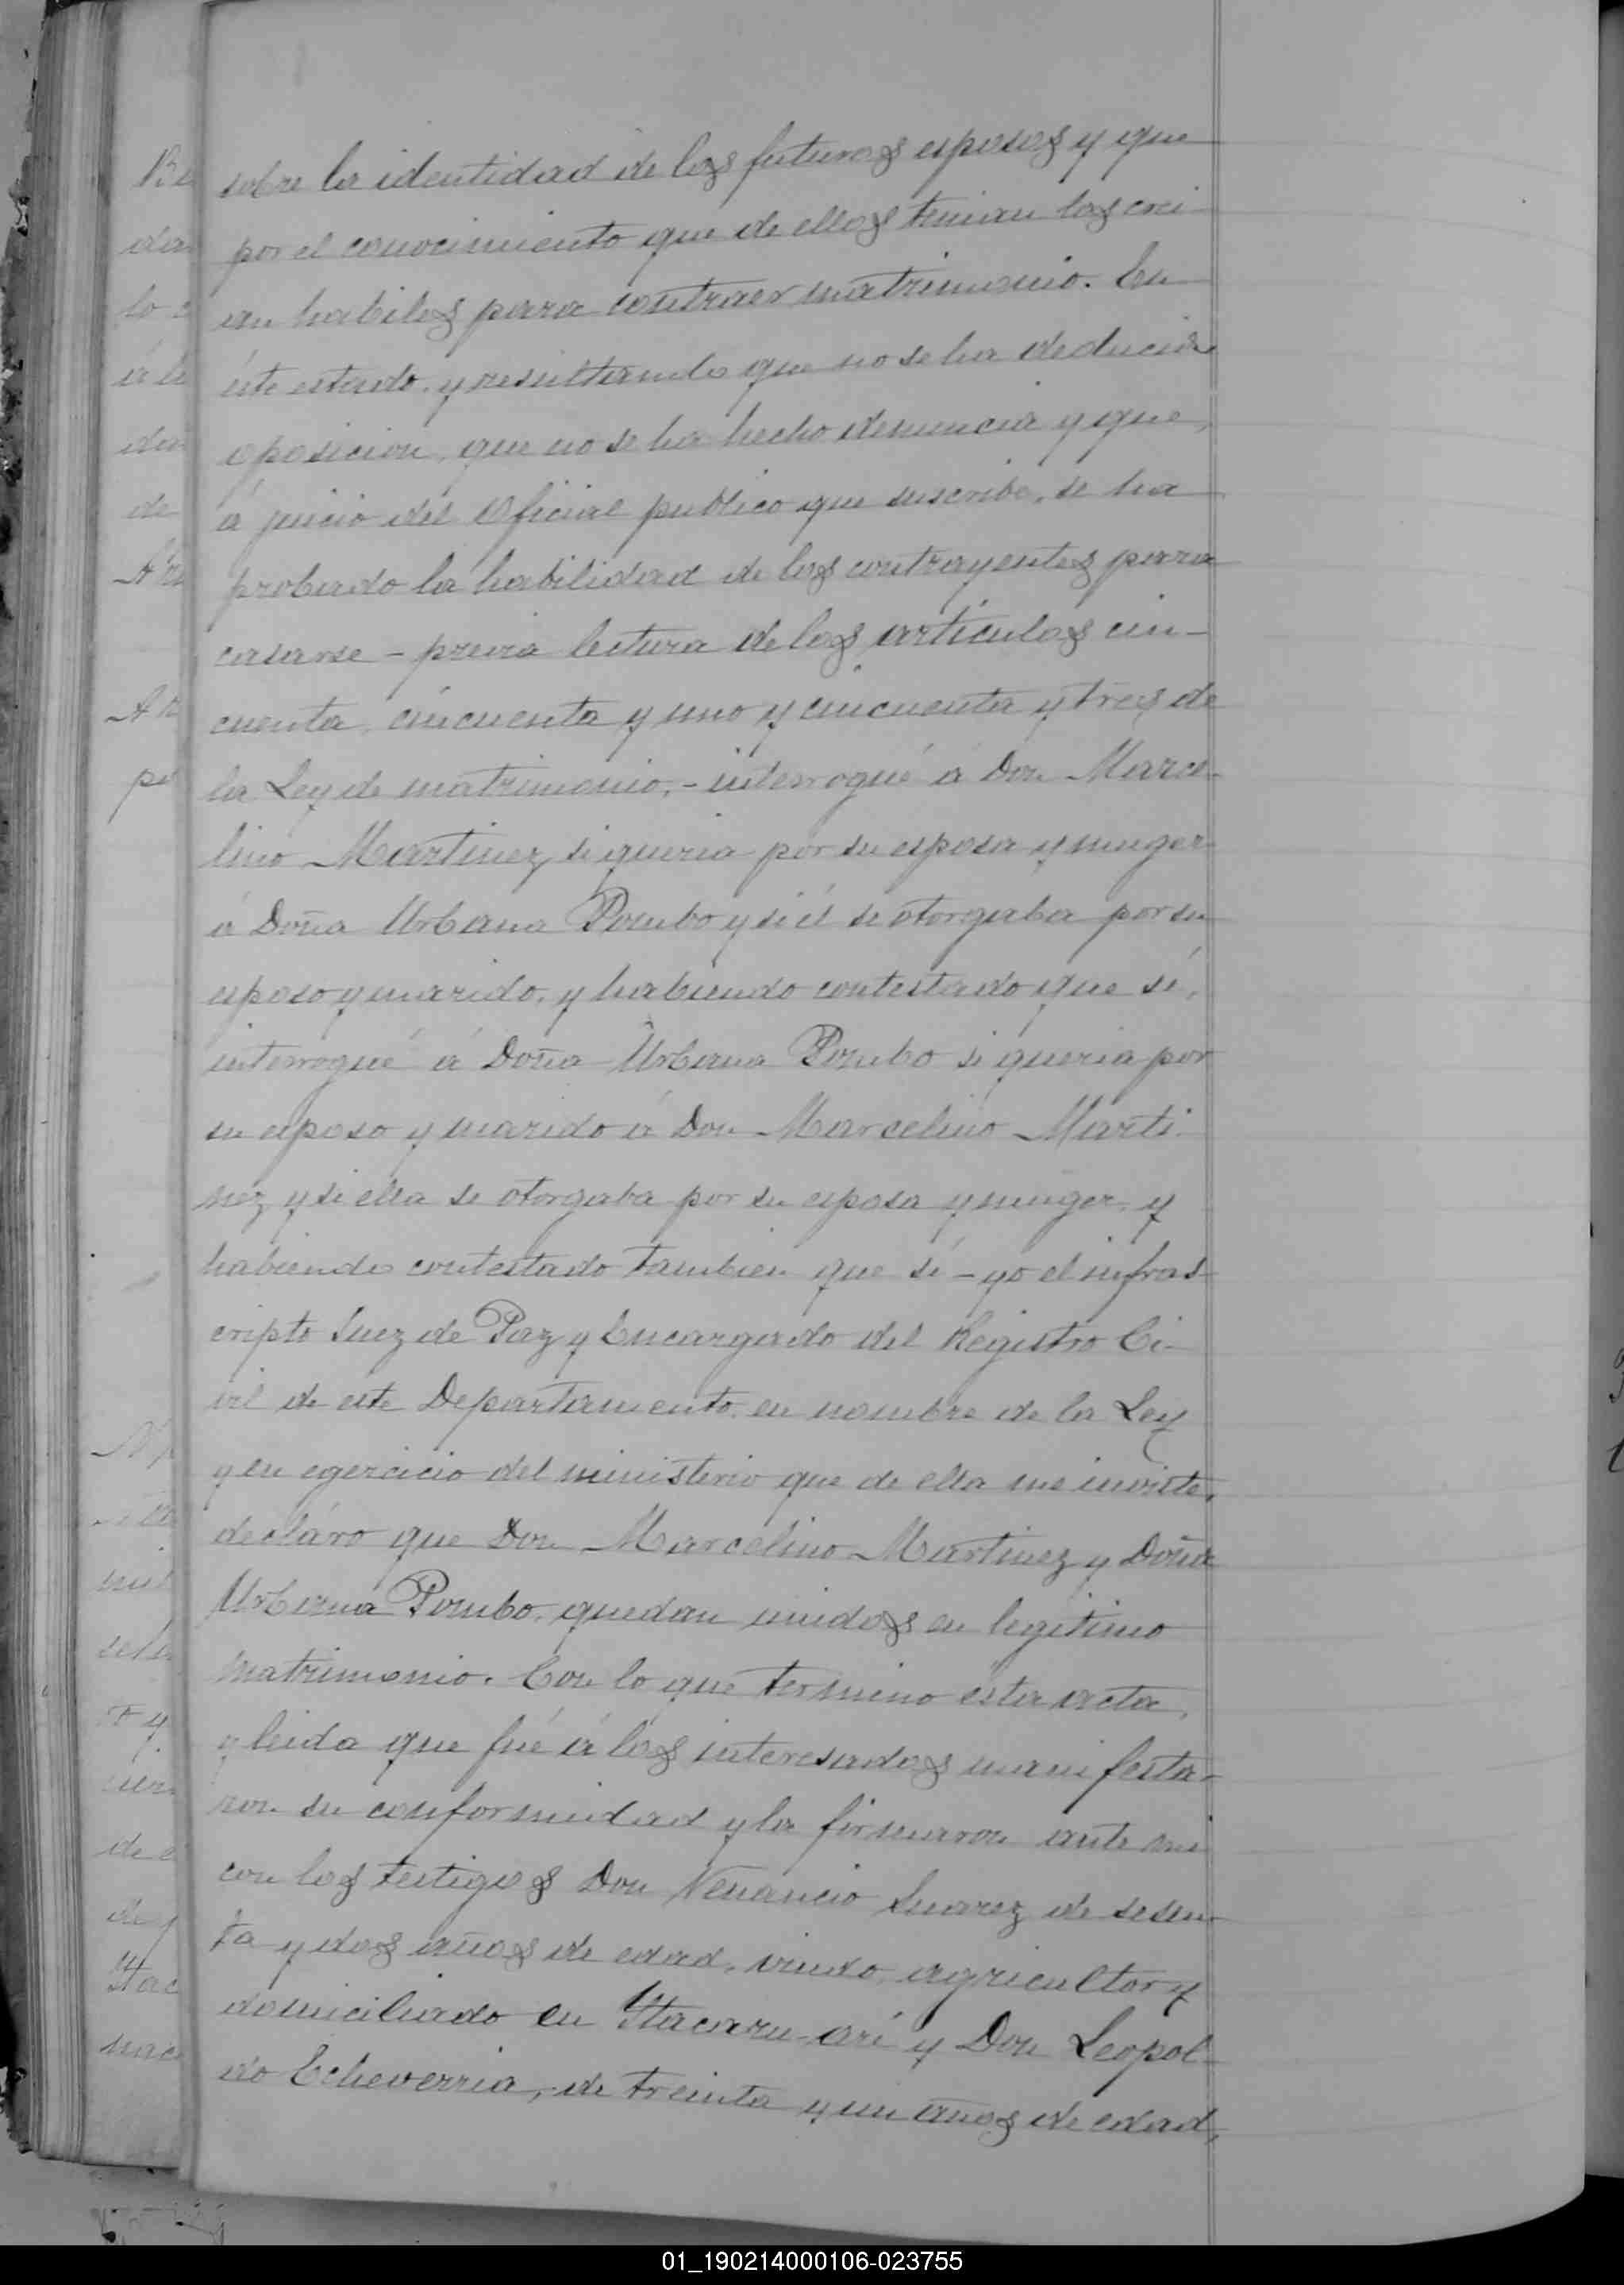 sobre la identidad de los futuros esposos y que
por el conocimiento que de ellos tenian los crei
an habiles para contraer matrimonio. En
éste estado, y resultando que no se ha deducido
oposicion, que no se ha hecho denuncia y que,
á juicio del Oficial publico que suscribe, se ha
probado la habilidad de los contrayentes para
casarse - previa lectura de los artículos cin-
cuenta, cincuenta y uno y cincuenta y tres de
la Ley de matrimonio, - interrogué á Don Marce-
lino Martinez si queria por su esposa y muger
á Doña Urbana Pombo y si él se otorgaba por su
esposo y marido, y habiendo contestado que sí,
interrogué á Doña Urbana Pombo si queria por
su esposo y marido á Don Marcelino Marti-
nez y si ella se otorgaba por su esposa y muger, y
habiendo contestado tambien que sí - yo el infras-
cripto Juez de Paz y Encargado del Registro Ci-
vil de este Departamento, en nombre de la Ley
y en egercicio del ministerio que de ella me inviste,
decláro que Don Marcelino Martinez y Doña
Urbana Pombo, quedan unidos en legitimo
matrimonio. Con lo que termino esta acta,
y leida que fué á los interesados manifesta-
ron su conformidad y la firmaron ante mi
con los testigos Don Venancio Suarez de sesen-
ta y dos años de edad, viudo, agricultor y
domiciliado en Itacaru-aré y Don Leopol-
do Echeverria, de treinta y un años de edad,
01_190214000106-023755